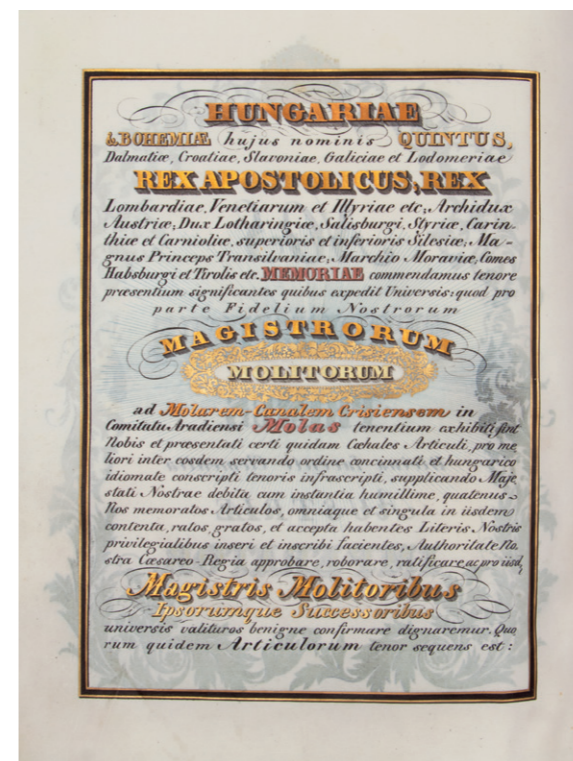 HUNGARIAE
& BOHEMIÆ hujus nominis QUINTUS,
Dalmatiæ, Croatiæ, Slavoniæ, Galiciæ et Lodomeriæ
REX APOSTOLICUS, REX
Lombardiae, Venetiarum et Illyriae etc; Archidux
Austriæ; Dux Lotharingiæ, Salisburgi, Styriæ, Carin-
thiæ et Carnioliæ, superioris et inferioris Silesiæ; Ma-
gnus Princeps Transilvaniae; Marchio Moraviæ, Comes
Habsburgi et Tirolis etc. MEMORIAE commendamus tenore
præsentium significantes quibus expedit Universis: quod pro
parte Fidelium Nostrorum
MAGISTRORUM
MOLITORUM
ad Molarem-Canalem Crisiensem in
Comitatu Aradiensi Molas tenentium exhibiti sint
Nobis et præsentati certi quidam Cæhales Articuli, pro me
liori inter eosdem servando ordine concinnati et hungarico
idiomate conscripti tenoris infrascripti, supplicando Maje
stati Nostrae debita cum instantia humillime, quatenus
Nos memoratos Articulos, omniaque et singula in iisdem
contenta, ratos, gratos, et accepta habentes Literis Nostris
privilegialibus inseri et inscribi facientes, Authoritate No,
stra Cæsareo-Regia approbare, roborare, ratificare ac pro iisd,
Magistris Molitoribus
Ipsorumque Successoribus
universis valituros benigne confirmare dignaremur. Quo
rum quidem Articulorum tenor sequens est: